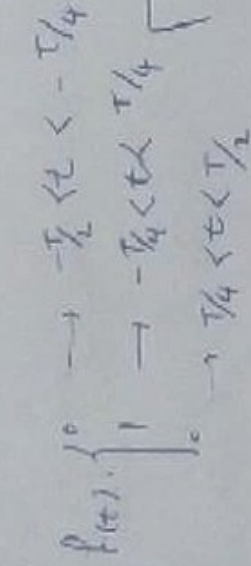 f(t). { 0 → -T/2 < t < -T/4
1 → -T/4 < t < T/4
0 → T/4 < t < T/2